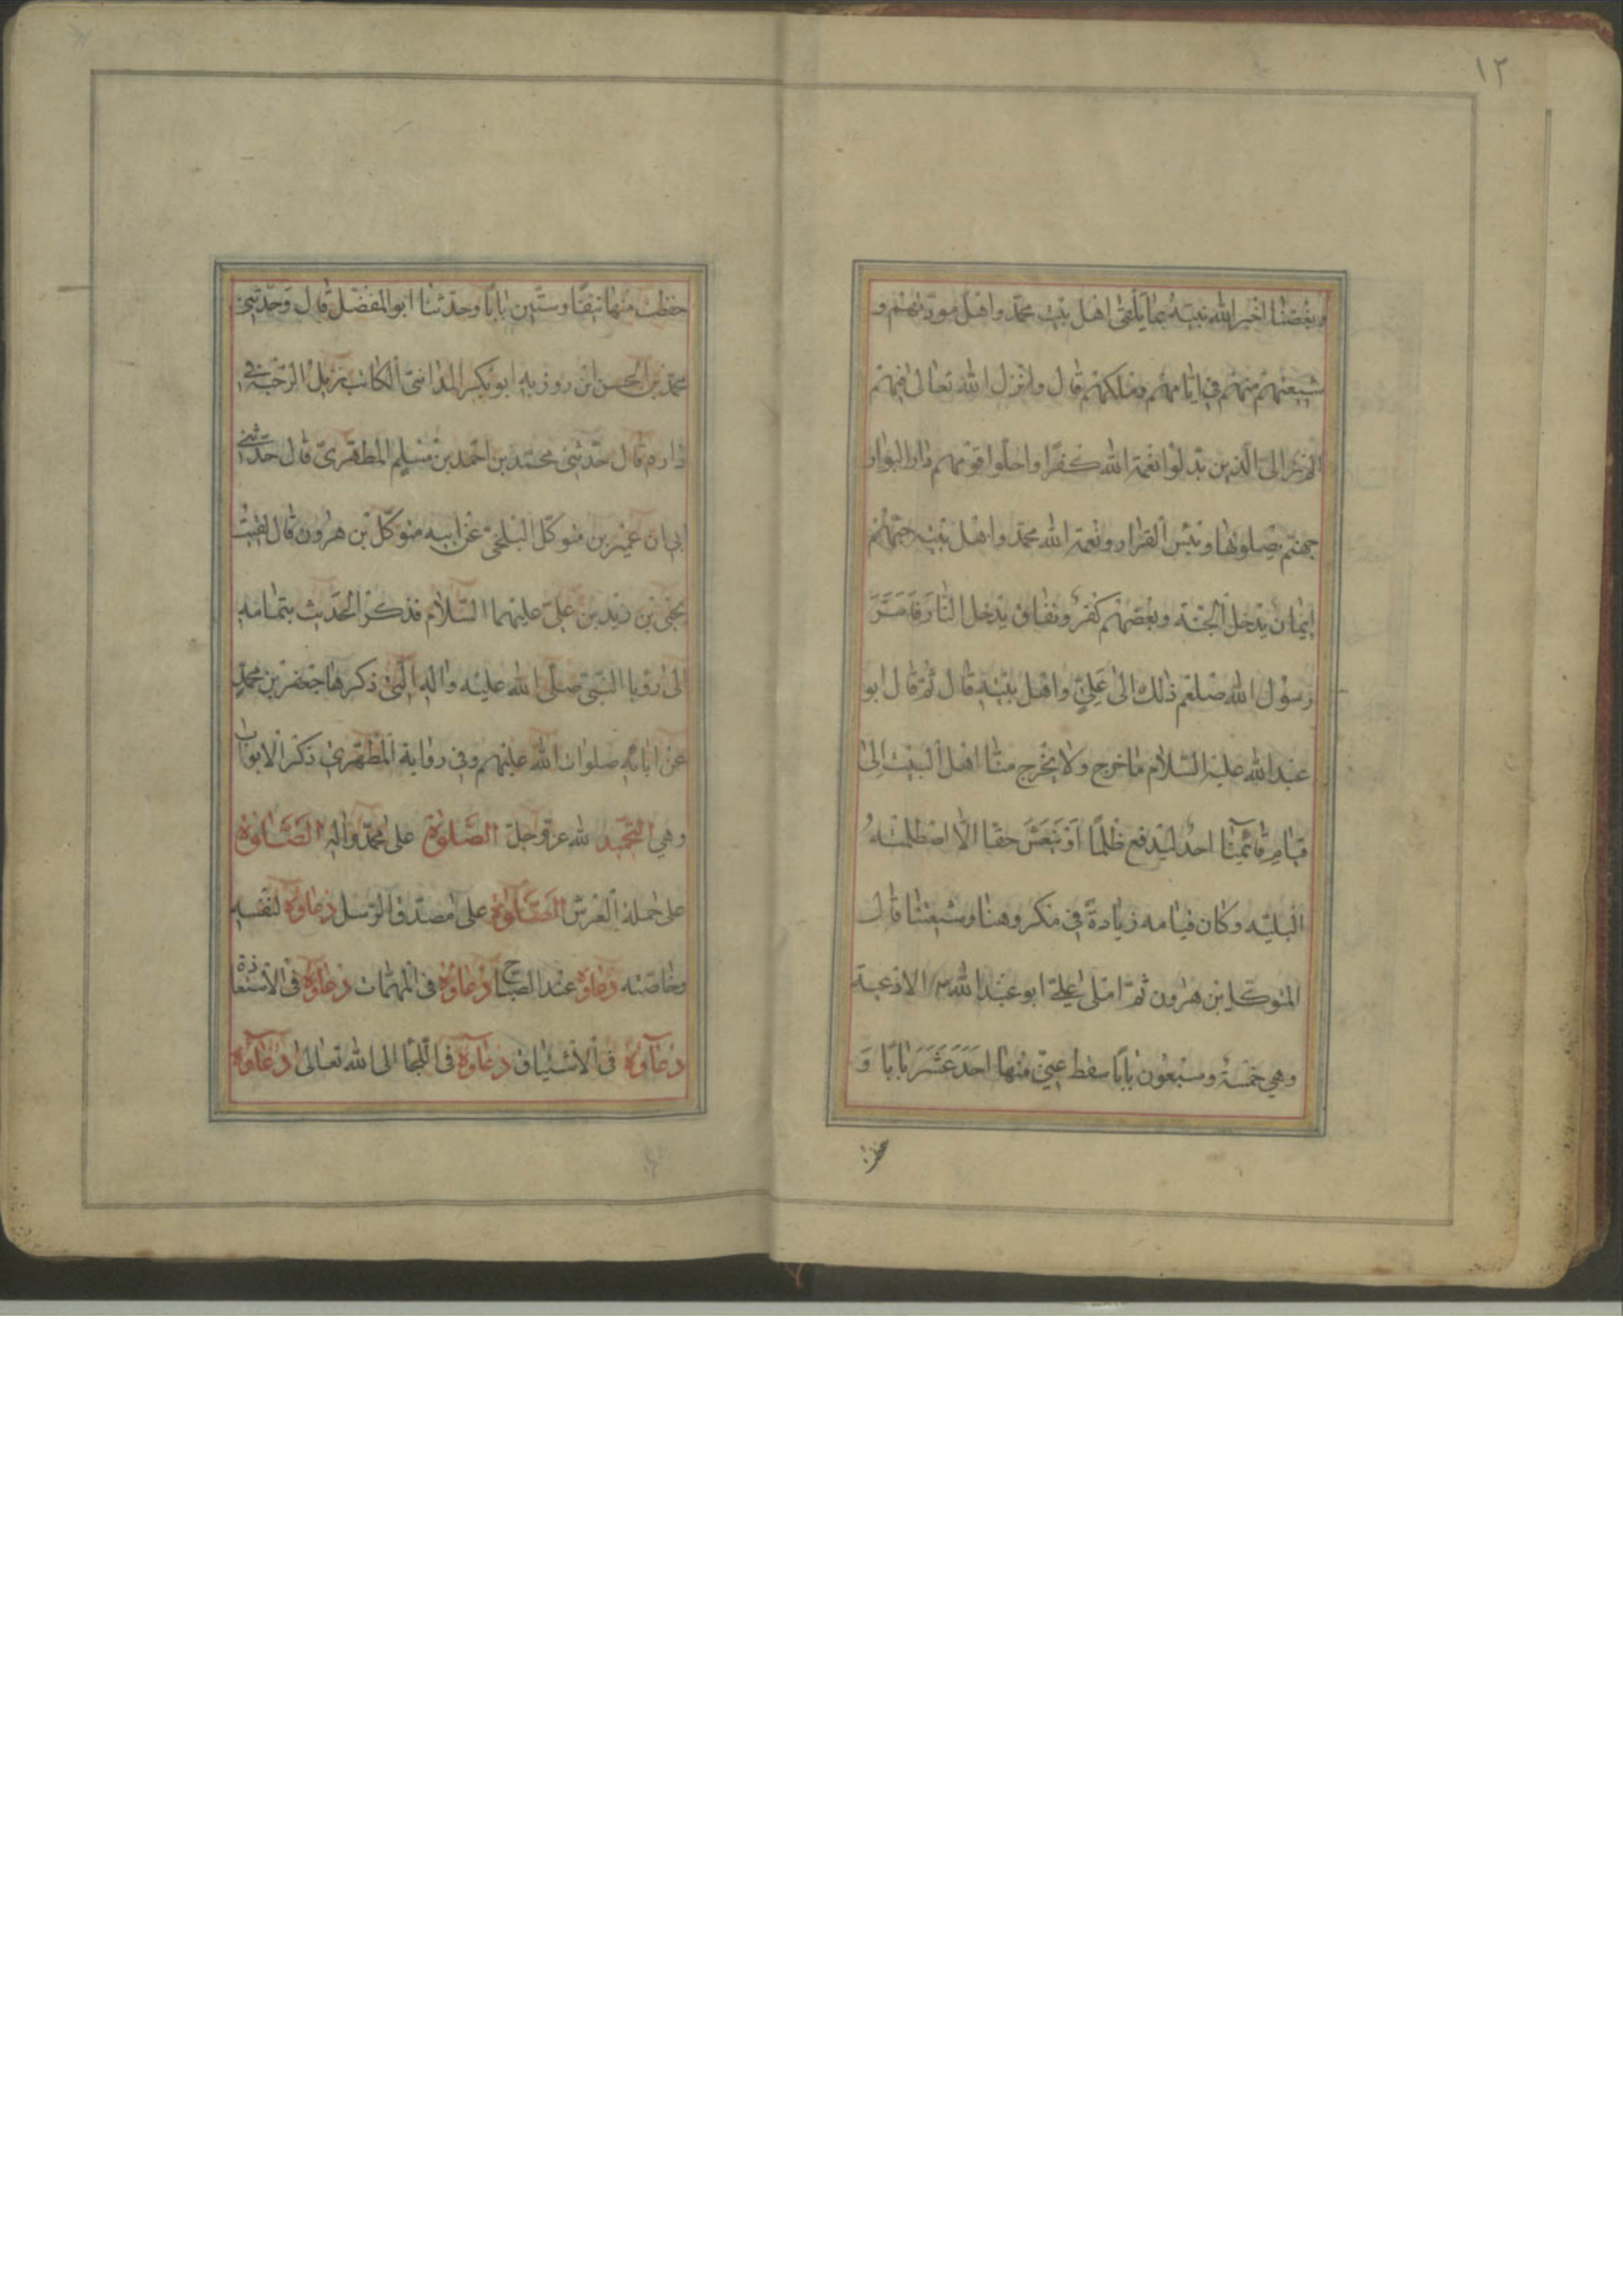 ١٢
وبغضنا اخبر الله نبيه بما يلقى اهل بيت محمد واهل مودتهم و
شيعتهم منهم في ايامهم وملكهم قال وانزل الله تعالى فيهم
الم تر الى الذين بدلوا نعمة الله كفرا واحلوا قومهم دار البوار
جهنم يصلونها وبئس القرار ونعمة الله محمد واهل بيته حبهم
ايمان يدخل الجنة وبغضهم كفر ونفاق يدخل النار فاسر
رسول الله صلعم ذلك الى علي واهل بيته قال ثم قال ابو
عبد الله عليه السلام ما خرج ولا يخرج منا اهل البيت الى
قيام قائمنا احد ليدفع ظلما او ينعش حقا الا اصطلمته
البليه وكان قيامه زيادة في مكروهنا وشيعتنا قال
المتوكل بن هرون ثم املى علي ابو عبد الله الادعية
وهي خمسة وسبعون بابا سقط عني منها احد عشر بابا و
حفظت
حفظت منها نيفا وستين بابا وحدثنا ابو المفضل قال وحدثني
محمد بن الحسن ابن روزبه ابو بكر المدائني الكاتب نزيل الرحبة في
داره قال حدثني محمد بن احمد بن مسلم المطهري قال حدثني
ابي ان عمير بن متوكل البلخي عن ابيه متوكل بن هرون قال لقيت
يحيى بن زيد بن علي عليهما السلام فذكر الحديث بتمامه
الى رؤيا النبي صلى الله عليه واله التي ذكرها جعفر بن محمد
عن ابائه صلوات الله عليهم وفي رواية المطهري ذكر الابواب
وهي التحميد لله عز وجل الصلوة على محمد واله الصلوة
على حملة العرش الصلوة على مصدقي الرسل دعاؤه لنفسه
وخاصته دعاؤه عند الصباح دعاؤه في المهمات دعاؤه في الاستعاذة
دعاؤه في الاشتياق دعاؤه في اللجا الى الله تعالى دعاؤه